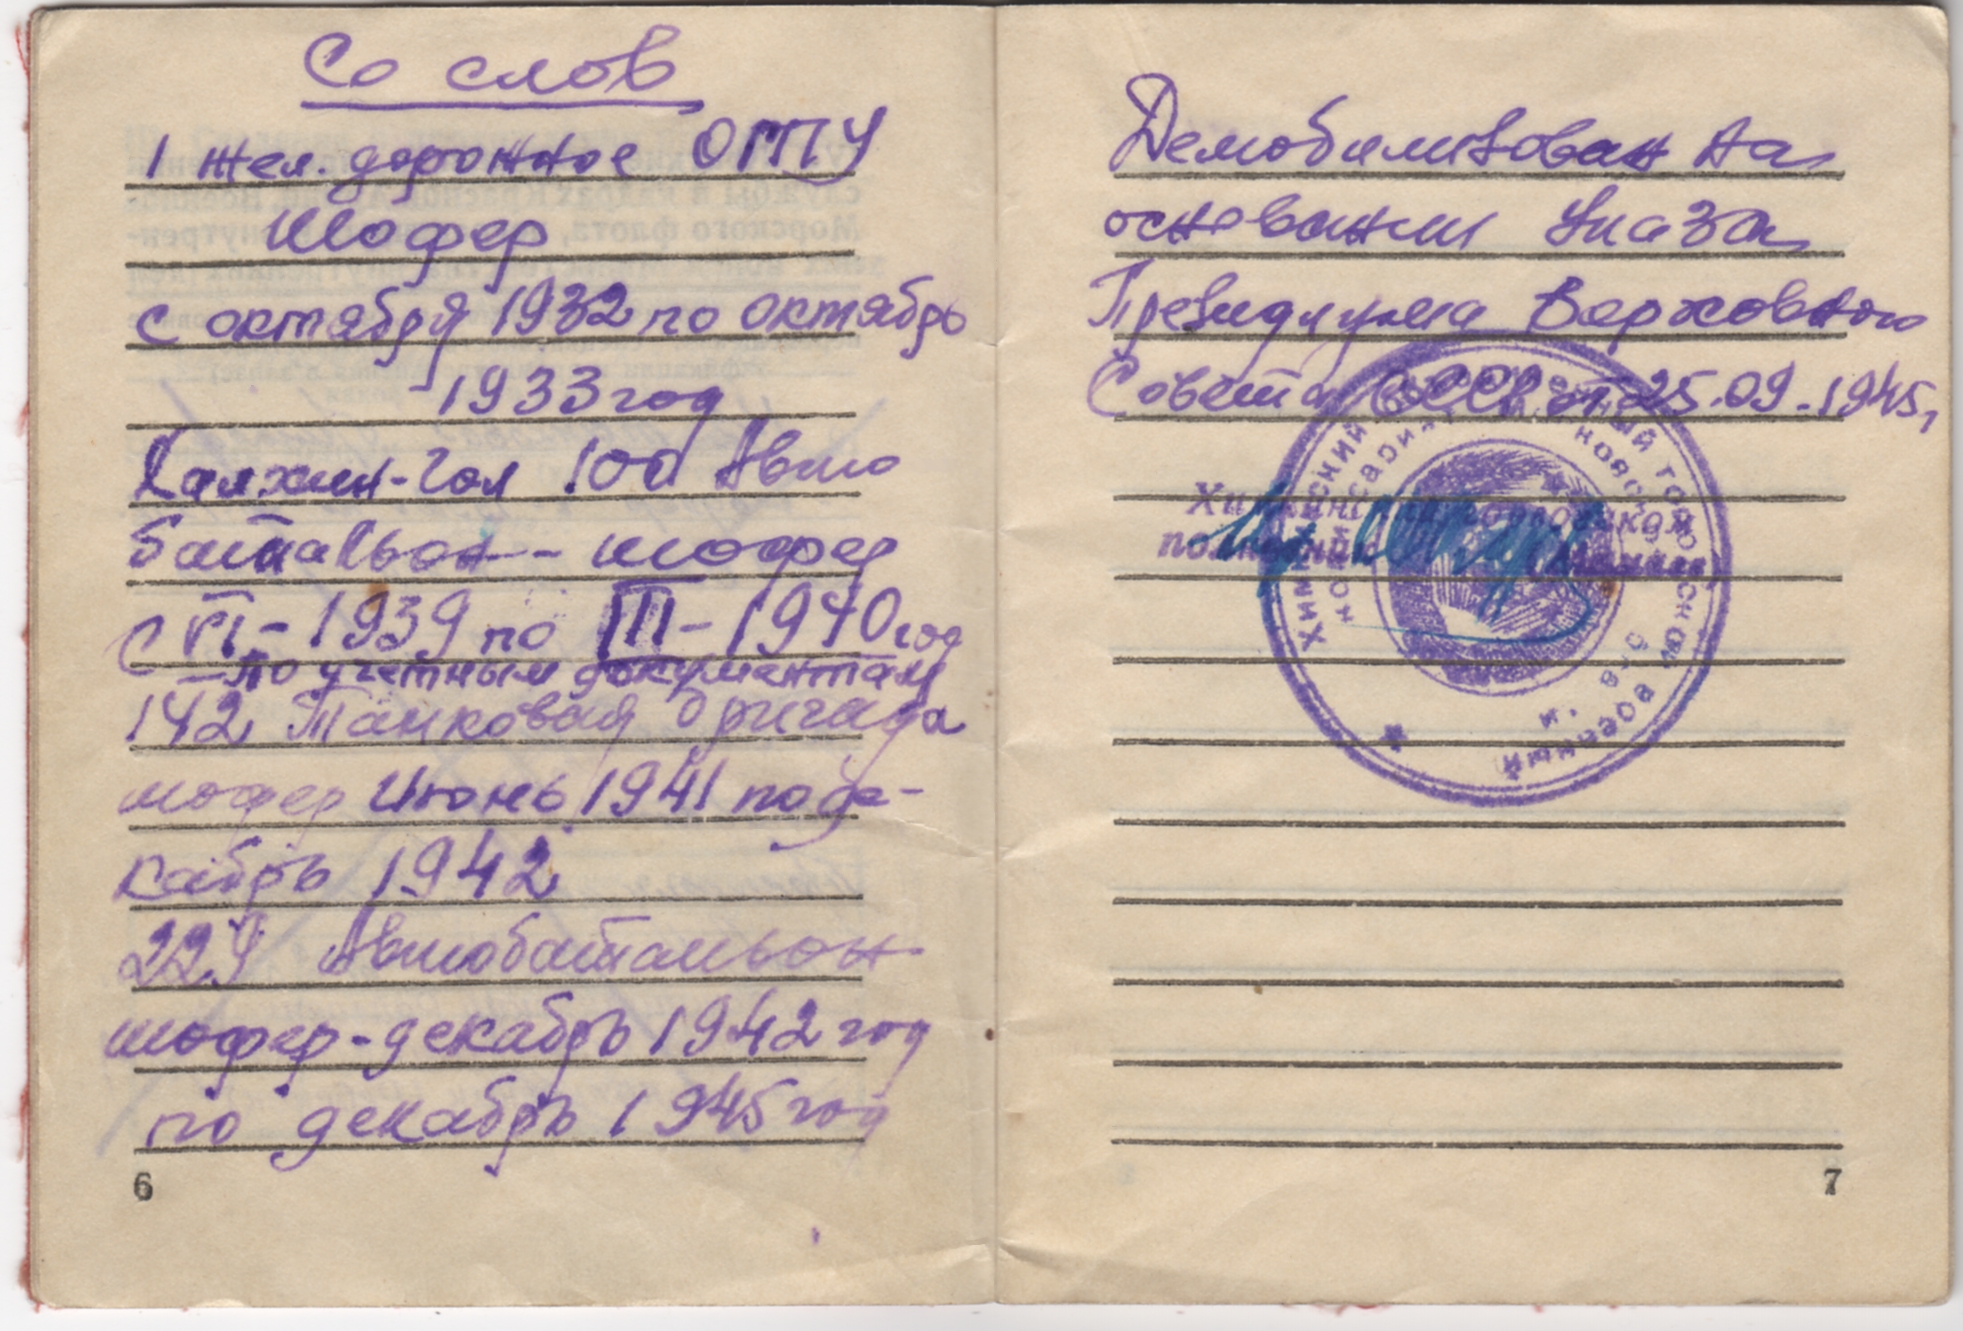 Со слов
1 жел. дорожное ОГПУ
Шофер
с октября 1932 по октябрь
1933 год
Халхин-Гол 100 Авто
батальон - шофер
с VI - 1939 по III - 1940 год
- по учетным документам
142 Танковая бригада
шофер Июнь 1941 по де-
кабрь 1942
229 Автобатальон
шофер - декабрь 1942 год
по декабрь 1945 год
6
Демобилизован на
основании Указа
Президиума Верховного
Совета СССР от 25.09.1945,
Химкинский
военный
7